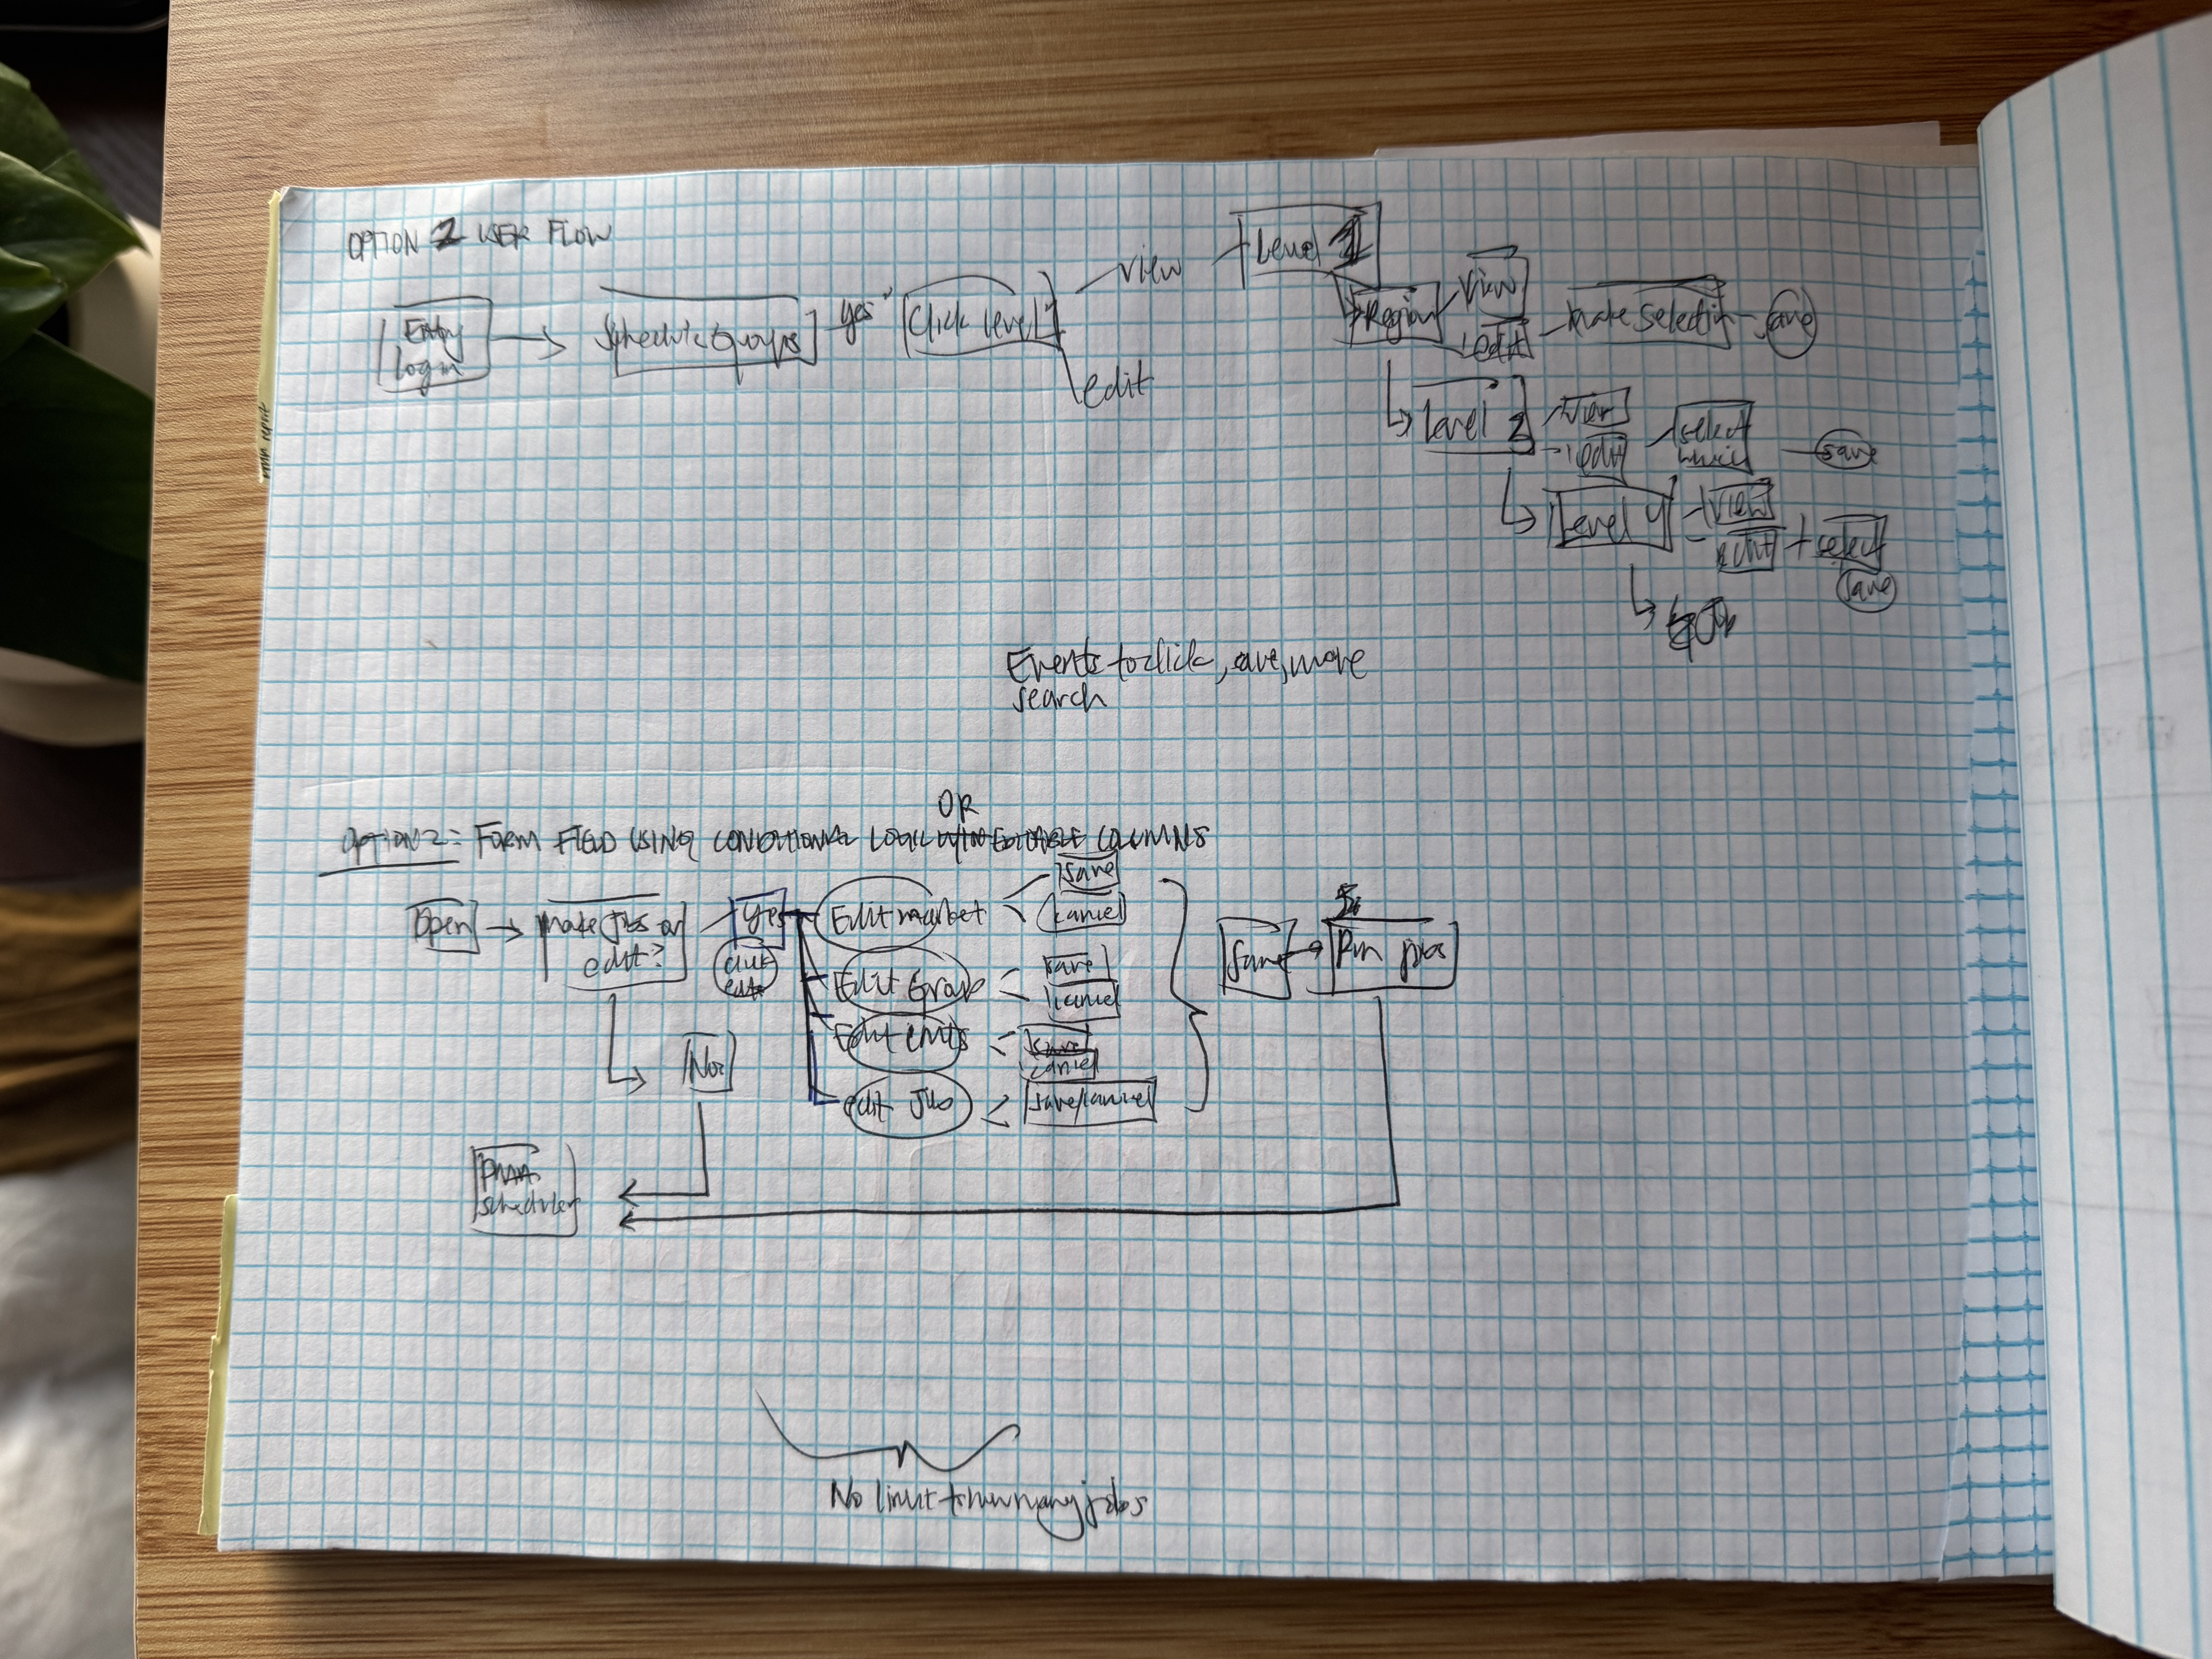 OPTION 2 USER FLOW
Entry
login
Schedule Groups
yes
Click Level 1
view
edit
Level 1
Region
view
edit
make selection
save
Level 2
view
edit
select
save
Level 4
view
edit
select
save
Events to click, save, move
search
OR
OPTION 2: FORM FIELD USING CONDITIONAL LOGIC WITH EDITABLE COLUMNS
Open
make jobs or
edit?
yes
click
No
Edit market
save
cancel
Edit Group
save
cancel
Edit
save
cancel
edit Job
save/cancel
Save
Run jobs
scheduler
No limit to how many jobs